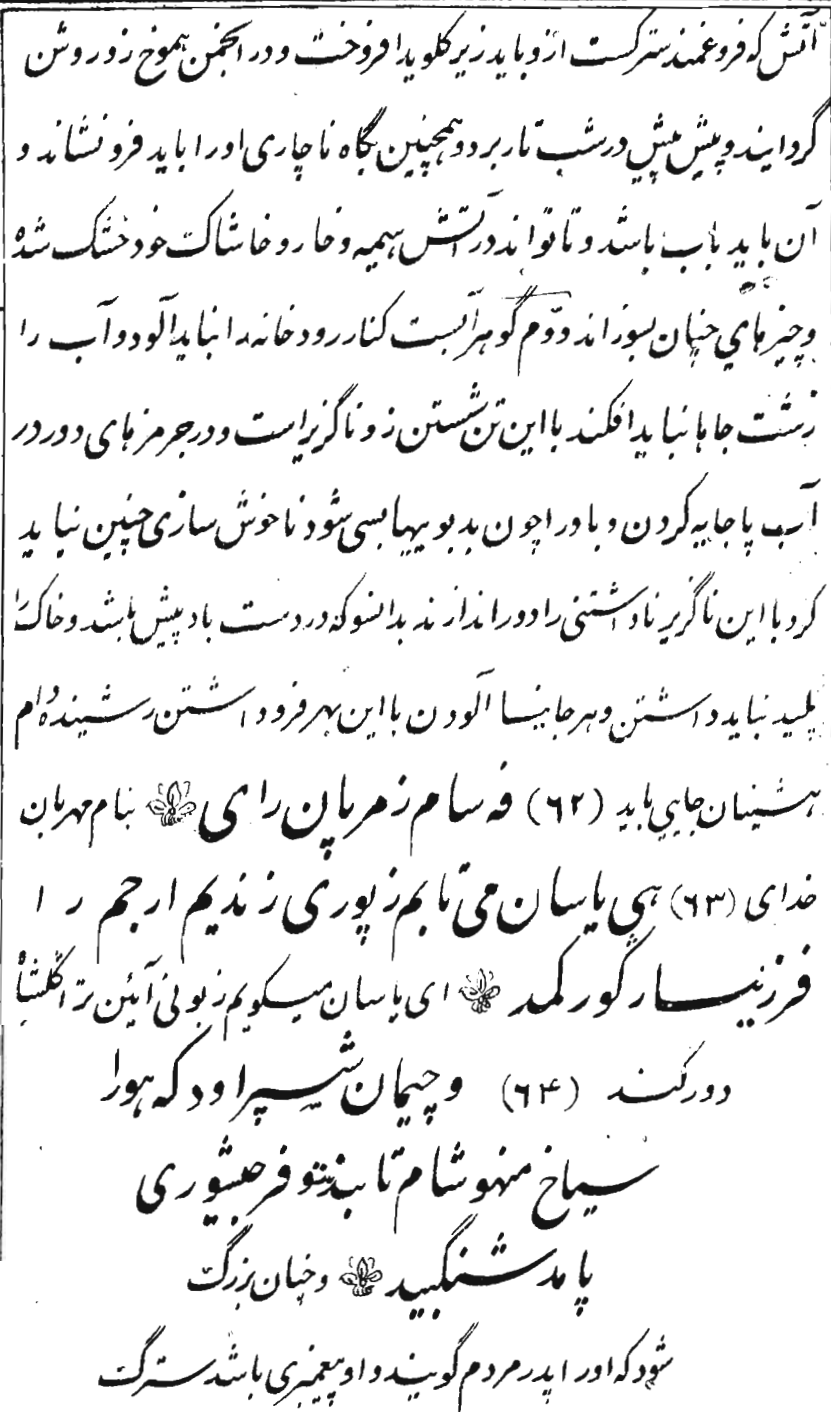 آتش که فروغمند سترگست ازو باید زیر کلوید افروخت و در انجمن هموخ زو روشن
گردایند و پیش پیش در شب تار برد و همچنین بگاه ناچاری او را باید فرو نشاند و
آن باید بآب باشد و تا تواند در آتش هیمه و خار و خاشاک خود خشک شده
و چیزهای چنان بسوزاند دوم گوهر آبست کنار رودخانه را نباید آلود و آب را
زشت جاها نباید افکند با این تن شستن زو ناگزیر است و در جرمزهای دور در
آب پاجایه کردن و باد را چون بد بویها بسی شود ناخوش سازی چنین نباید
کرد با این ناگزیر ناداشتنی را دور اندازند بدانسو که در دست باد پیش باشد و خاک را
پلید نباید داشتن و هر جا بنسا آلودن با این بهر فرود داشتن
جایی باید (۶۲) فه سام زمرپان رای بنام مهربان
خدای (۶۳) هی یاسان می تابم زپوری زندیم ارجم را
فرزنیسار گورکمد ای یاسان میگویم زبونی آیین ترا گلشاه
دور کند (۶۴) و چیمان شیپراود که هورا
سیماخ منهوشام تابند و
پامد شنگبید و چنان بزرگ
شود که او را پدر مردم گویند و او پیغمبری باشد سترگ